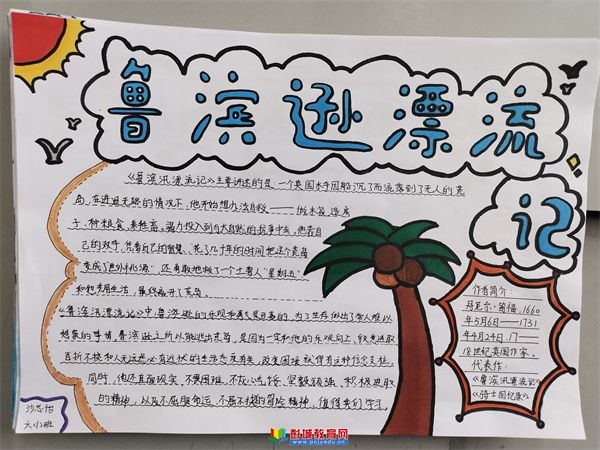 鲁滨逊漂流
记
《鲁滨汛漂流记》主要讲述的是一个英国水手因船沉了而流落到了无人的荒
岛,在进退无路的情况下,他开始想办法自救——做木筏、造房
子、种粮食、养牲畜。着力投入到与大自然的抗争中去,他靠自
己的双手,凭着自己的智慧,花了几十年的时间把这个荒岛
变成了"世外桃源",还勇敢地救了一个土著人"星期五"
和他共同生活,最终离开了荒岛。
《鲁滨汛漂流记》中,鲁滨逊的乐观和善是显著的,为了生存做出了常人难以
想象的事情,鲁滨逊之所以能逃出荒岛,是因为一定和他的乐观向上、锐意进取
百折不挠和人无远虑必有近忧的生活态度有关,改变困境就得有这种信念支柱。
同时,他还直面现实,不畏困难,不灰心丧气,坚毅顽强,积极进取
的精神,以及不屈服命运,不屈不挠的冒险精神,值得我们学习
作者简介:
丹尼尔·笛福,1660
年5月6日——1731
年4月24日,17——
18世纪英国作家。
代表作:
《鲁滨汛漂流记》
《骑士回忆录》
六(2)班
彭城教育网
www.pcjyedu.cn